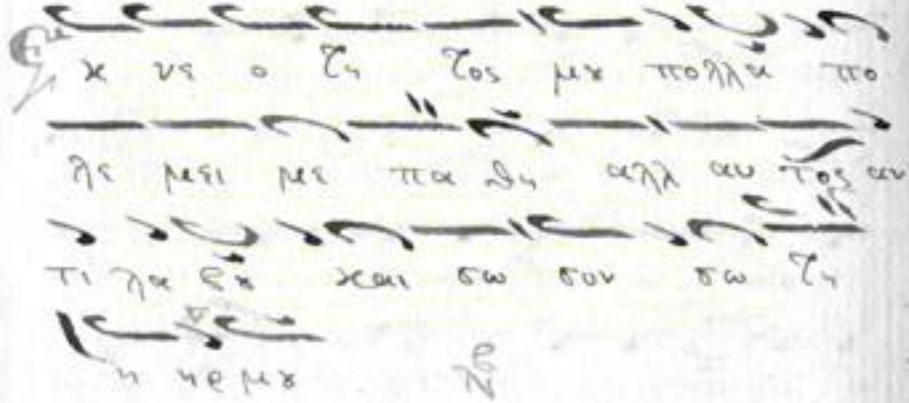 Ε κ νε ο τη τος μȣ πολλα πο
λε μει με πα θη αλλ αυ τος αν
τι λα βȣ και σω σον σω τη
η ηρ μȣ